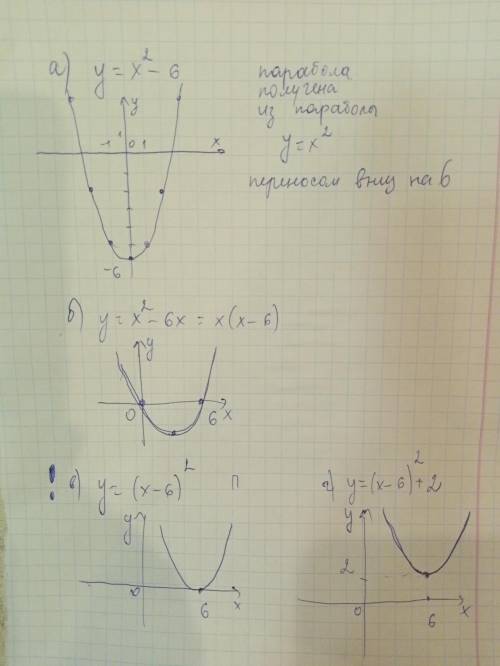 а) y = x² - 6
парабола
получена
из параболы
y = x²
переносом вниз на 6
y
-1 1 0 1 x
-6
б) y = x² - 6x = x(x - 6)
y
0 6 x
! в) y = (x - 6)² П
y
0 6 x
г) y = (x - 6)² + 2
y
2
0 6 x